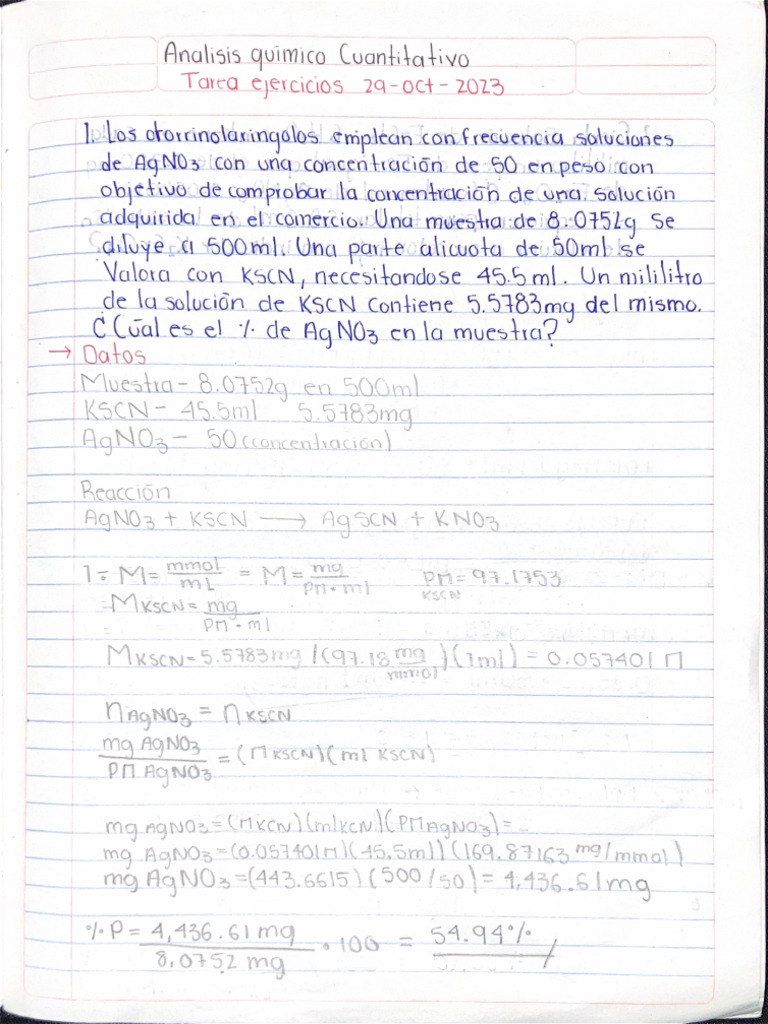 Analisis químico Cuantitativo
Tarea ejercicios 29-oct-2023
1. Los otorrinolaringalos emplean con frecuencia soluciones
de AgNO3 con una concentración de 50 en peso con
objetivo de comprobar la concentración de una solución
adquirida en el comercio. Una muestra de 8.0752g se
diluye a 500ml. Una parte alicuota de 50ml se
Valora con KSCN, necesitandose 45.5ml. Un mililitro
de la solución de KSCN contiene 5.5783mg del mismo.
¿Cuál es el % de AgNO3 en la muestra?
→ Datos
Muestra - 8.0752g en 500ml
KSCN - 45.5ml 5.5783mg
AgNO3 - 50 (concentración)
Reacción
AgNO3 + KSCN ⟶ AgSCN + KNO3
1 ÷ M = mmol/mL = M = mg/PM · ml PM KSCN = 97.1753
MKSCN = mg/PM · ml
MKSCN = 5.5783mg / (97.18 mg/mmol)(1ml) = 0.057401 M
nAgNO3 = nKSCN
mg AgNO3/PM AgNO3 = (MKSCN)(ml KSCN)
mg AgNO3 = (MKCN)(mlKCN)(PMAgNO3) =
mg AgNO3 = (0.057401M)(45.5ml)(169.87163 mg/mmol)
mg AgNO3 = (443.6615)(500/50) = 4,436.61mg
% P = 4,436.61 mg/8,0752 mg · 100 = 54.94%